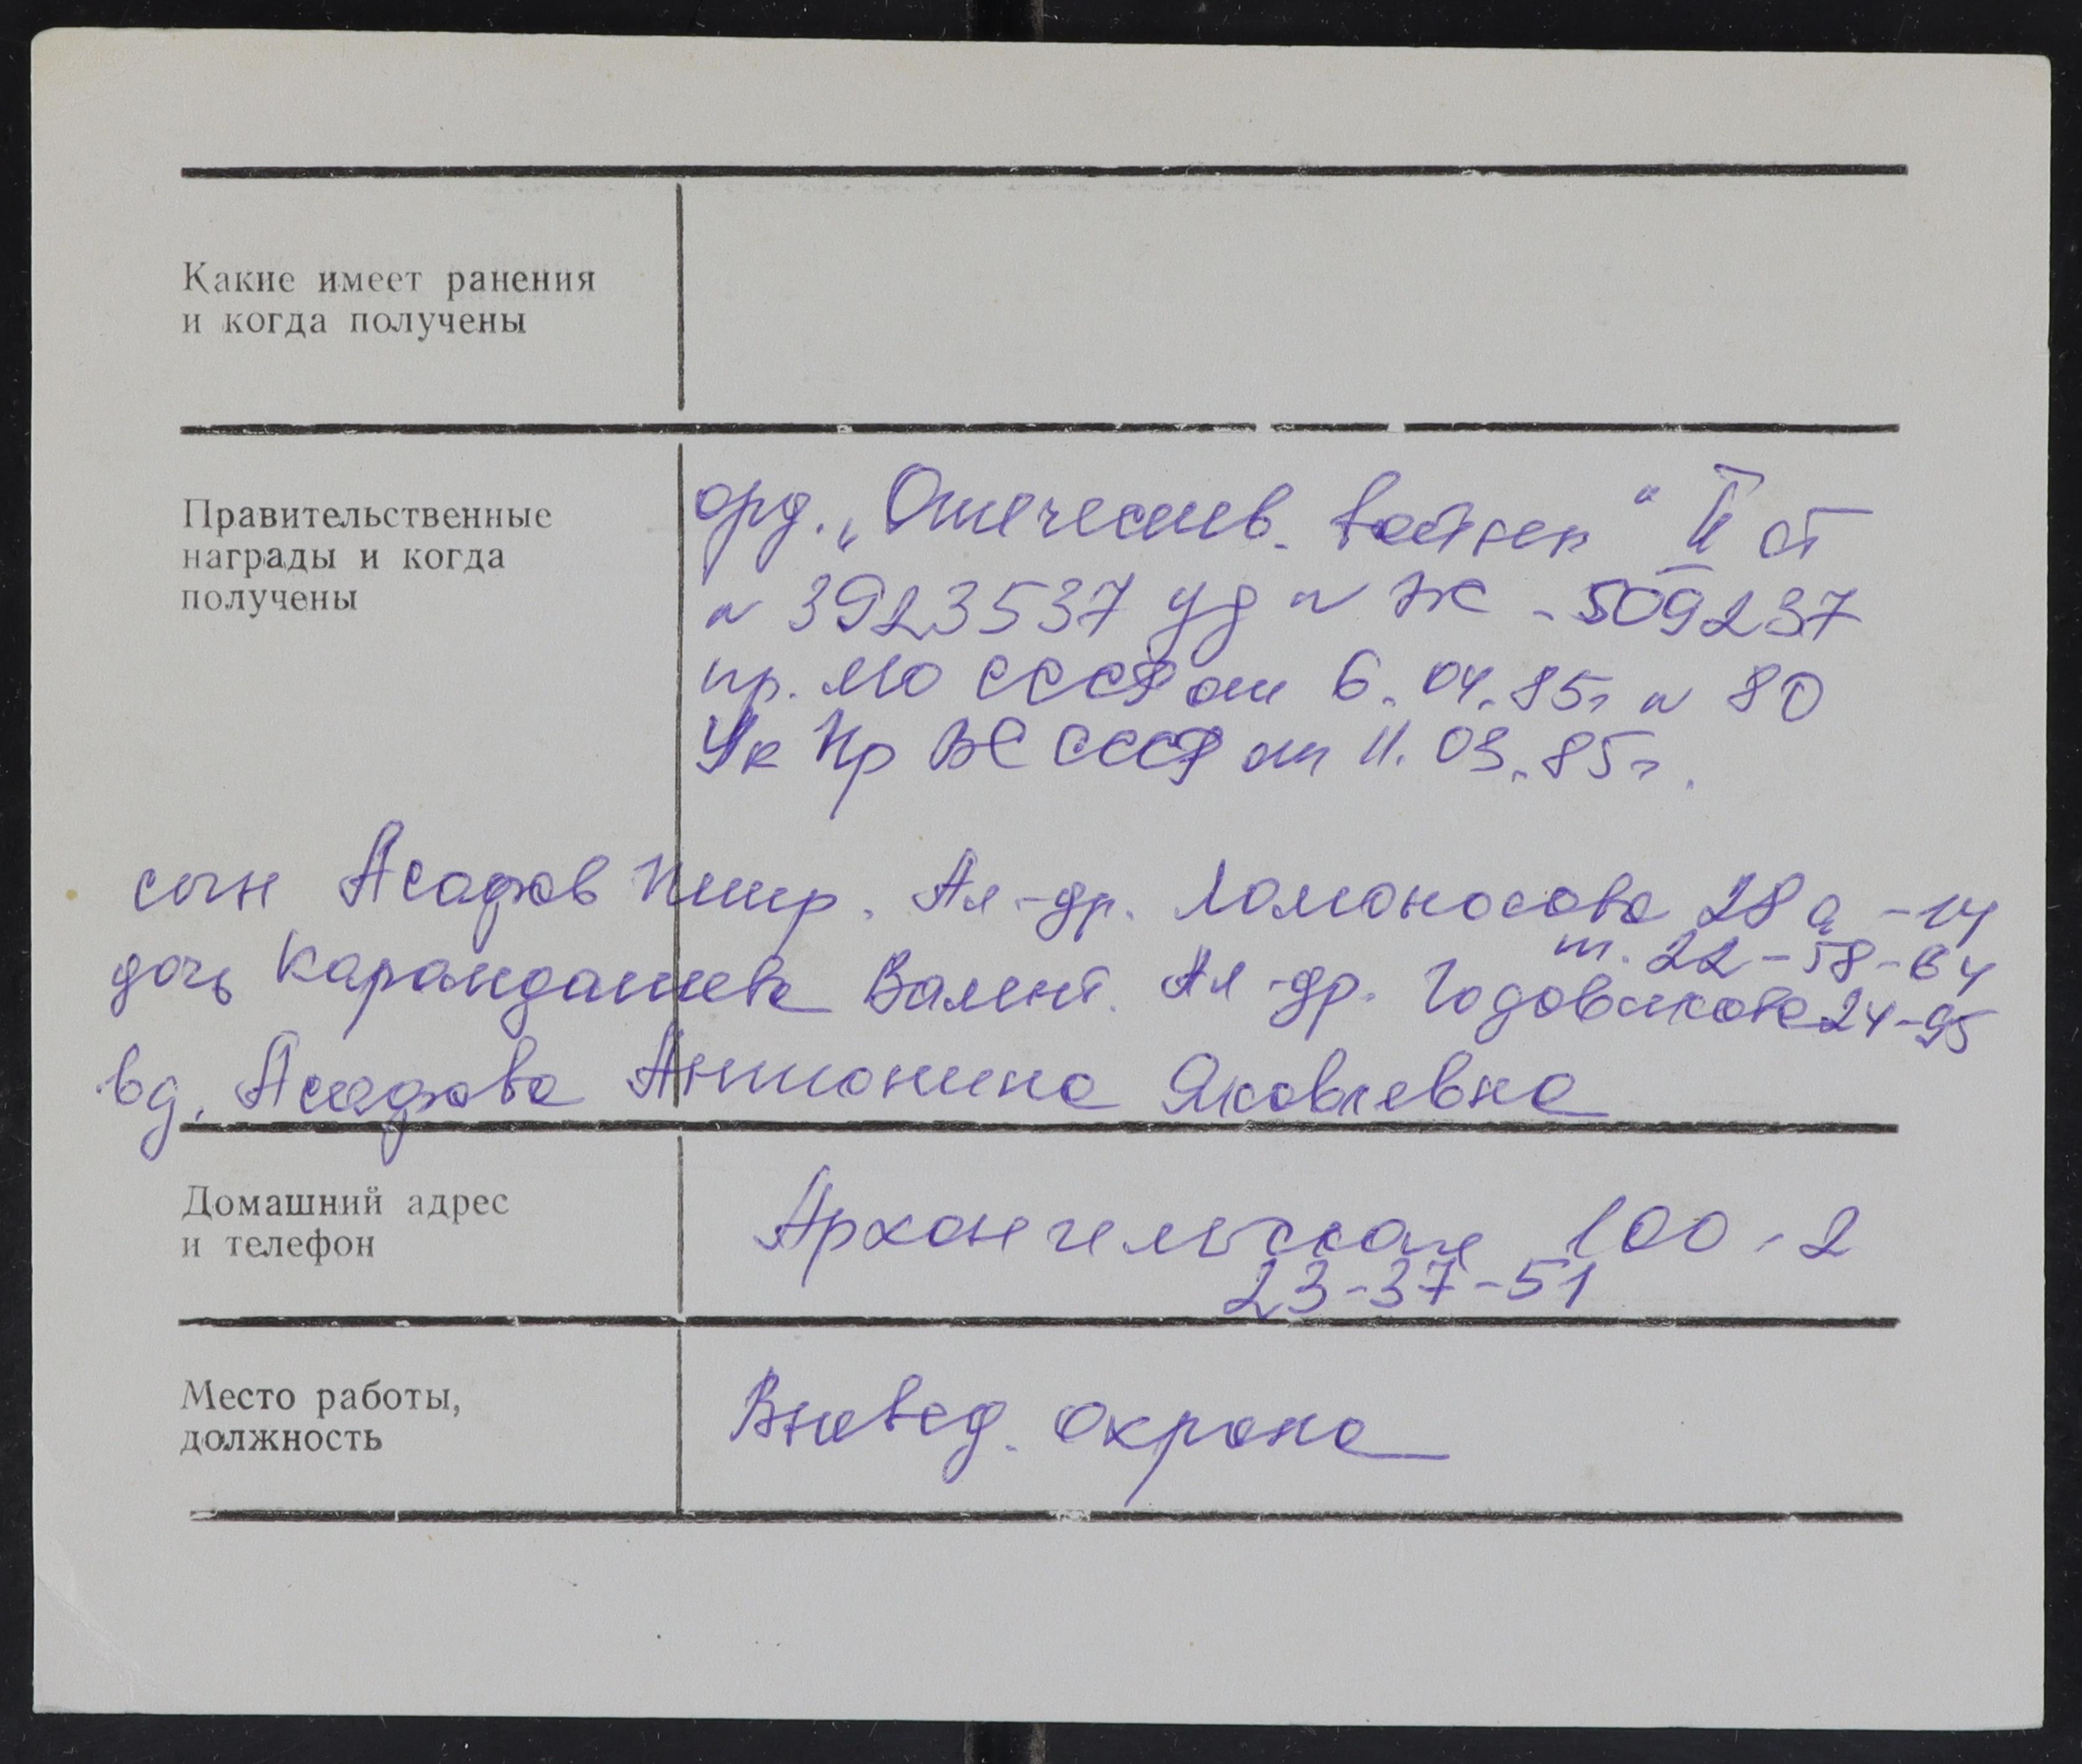 Какие имеет ранения
и когда получены
Правительственные
награды и когда
получены
орд. „Отечеств. войны“ II ст
№ 3923537 уд № Ж - 509237
пр. МО СССР от 6.04.85г № 80
Ук Пр ВС СССР от 11.03.85г.
сын Асафов Ал-др. Ломоносова 28а - 14
т. 22-58-64
дочь Карандашева Валент. Ал-др. Годовикова 24-95
вд. Асафова Антонина Яковлевна
Домашний адрес
и телефон
Архангельская 100-2
23-37-51
Место работы,
должность
Вневед. охрана